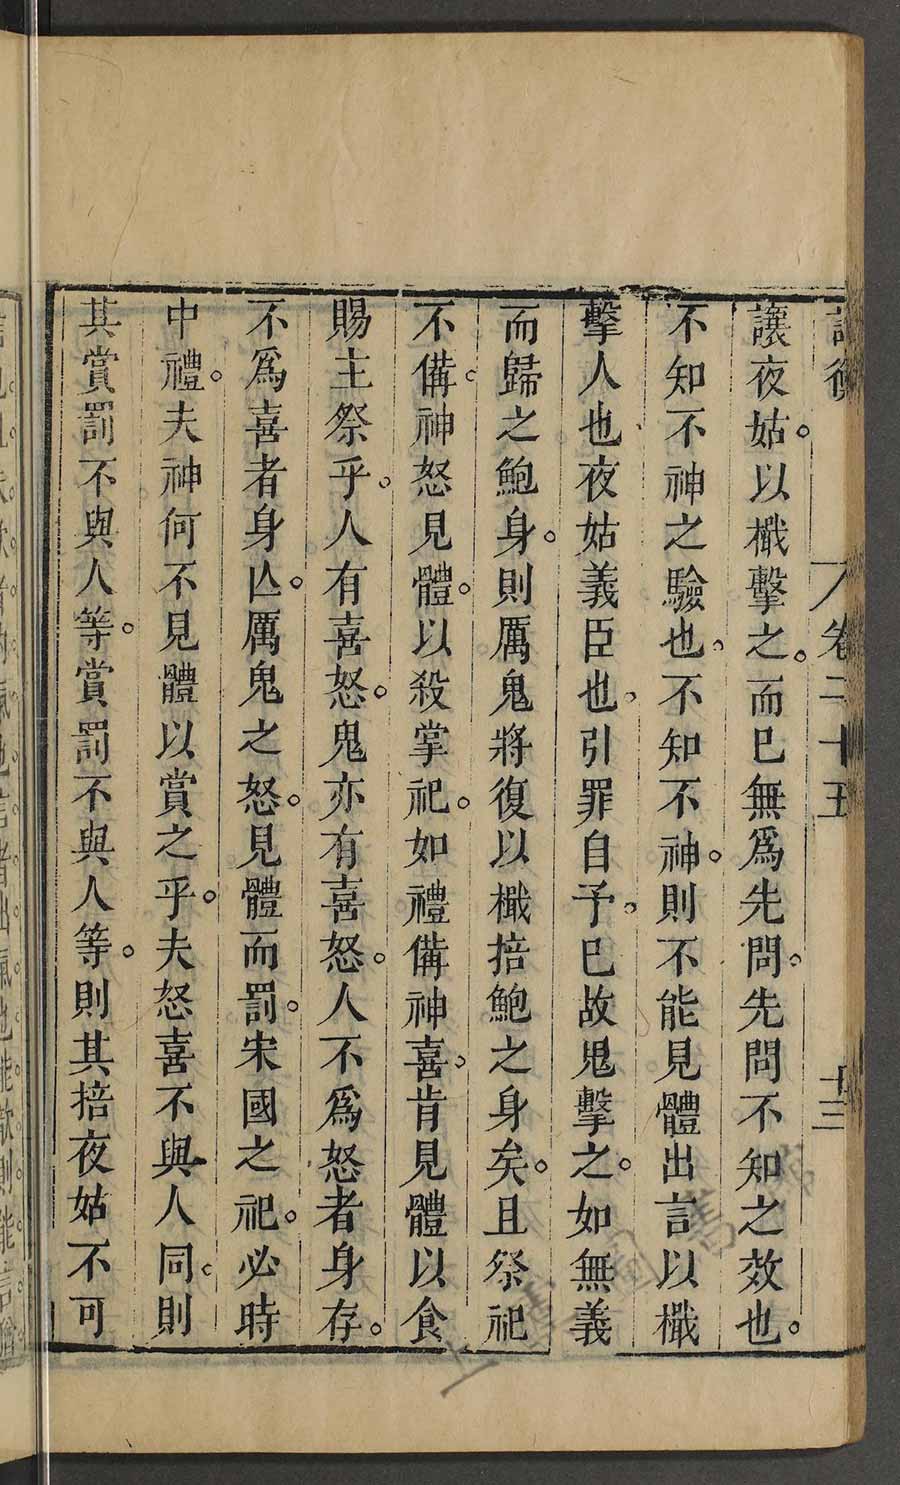 論衡 卷二十五 十三
讓夜姑。以檝擊之。而已無爲先問。先問不知之效也。
不知不神之驗也。不知不神。則不能見體出言以檝
擊人也夜姑義臣也。引罪自予。已故鬼擊之。如無義
而歸之鮑身。則厲鬼將復以檝掊鮑之身矣。且祭祀
不備。神怒見體。以殺掌祀。如禮備神喜。肯見體以食
賜主祭乎。人有喜怒。鬼亦有喜怒。人不爲怒者身存。
不爲喜者身亾。厲鬼之怒。見體而罰。宋國之祀。必時
中禮。夫神何不見體以賞之乎。夫怒喜不與人同。則
其賞罰不與人等。賞罰不與人等。則其掊夜姑不可